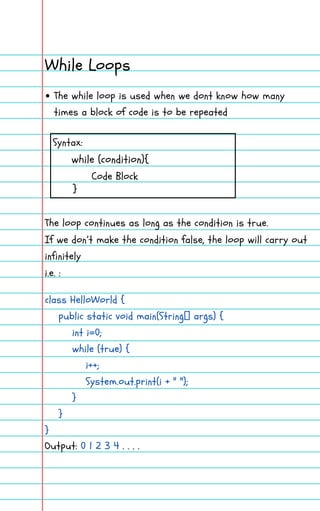 While Loops
• The while loop is used when we dont know how many
times a block of code is to be repeated
Syntax:
while (condition){
Code Block
}
The loop continues as long as the condition is true.
If we don't make the condition false, the loop will carry out
infinitely
i.e. :
class HelloWorld {
public static void main(String[] args) {
int i=0;
while (true) {
i++;
System.out.print(i + " ");
}
}
}
Output: 0 1 2 3 4 . . . .